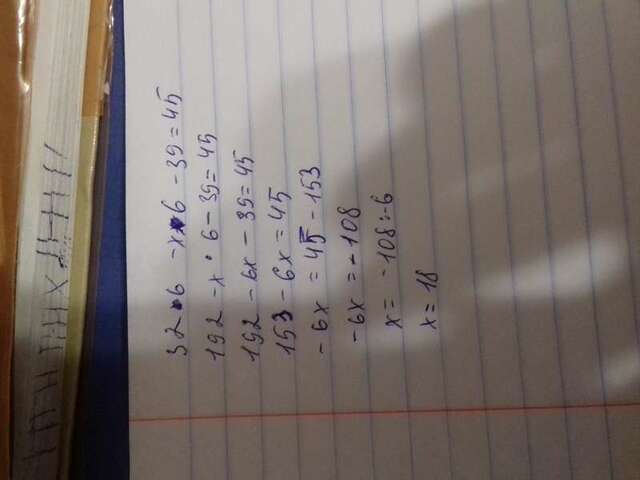 32 • 6 - x • 6 - 39 = 45
192 - x • 6 - 39 = 45
192 - 6x - 39 = 45
153 - 6x = 45
- 6x = 45 - 153
- 6x = - 108
x = - 108 : - 6
x = 18